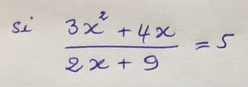 si (3x² + 4x) / (2x + 9) = 5